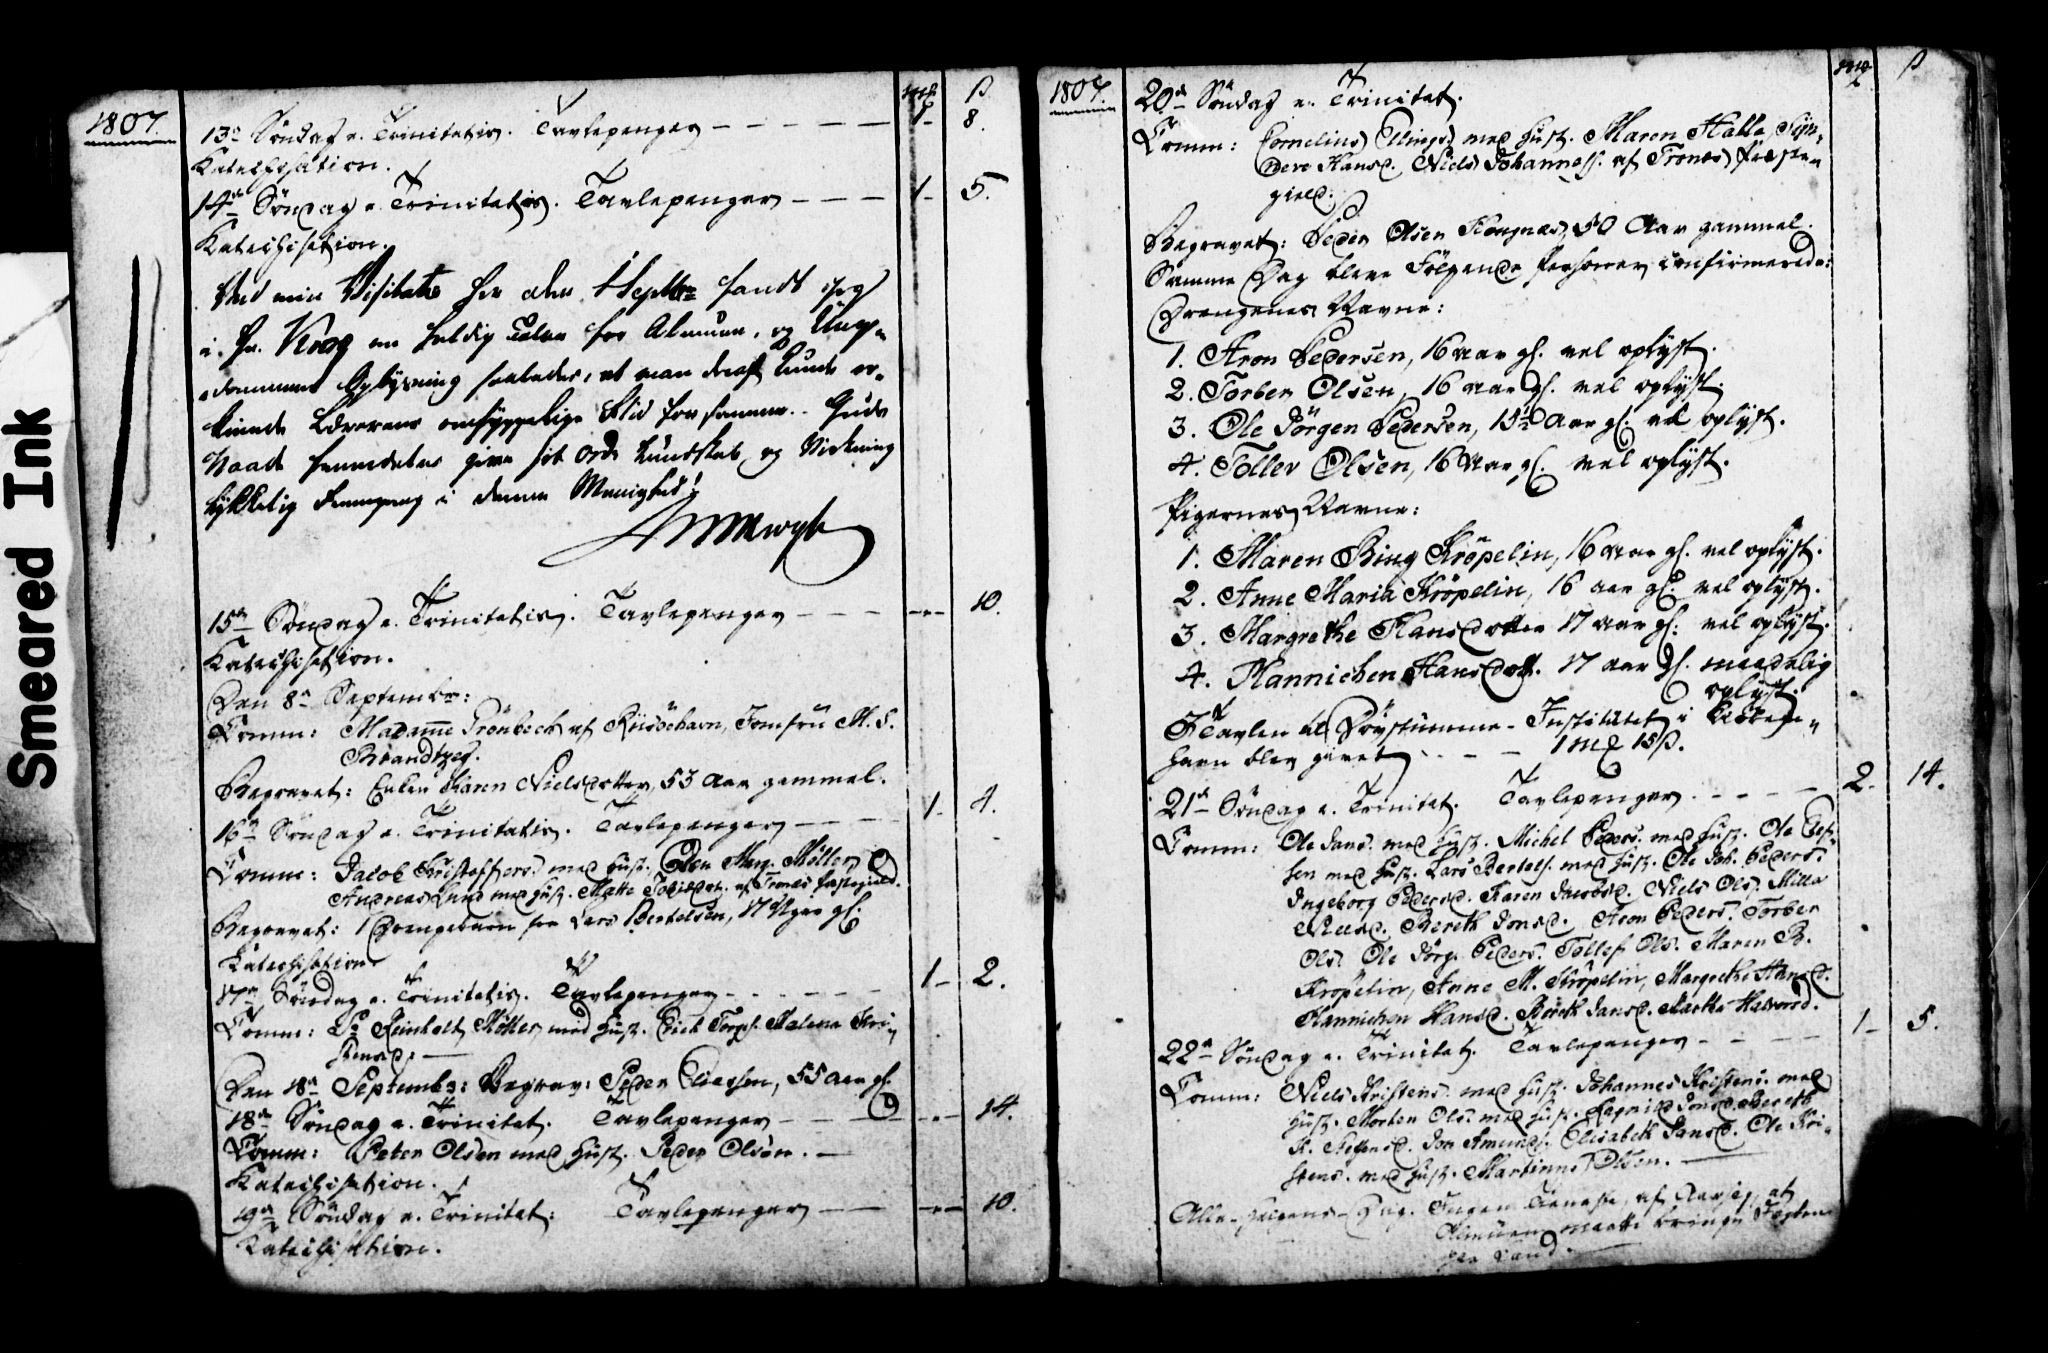 Smeared Ink
1807.
mk ß
13de Söndag e. Trinitatis. Tavlepenger - - - - - 1- 8.
Katechisation.
14de Söndag e. Trinitatis. Tavlepenger - - - 1- 5.
Katechisation.
Ved min Visitats her den 1 Septbr fandt jeg
i Hr. Krog en heldig Taler for Almuen, og Ung-
dommens Oplysning saaledes, at man deraf kunde er-
kiende Lærerens omhyggelige Flid for samme. Guds
Naade fremdeles give sit Ords Kundskab og Virkning
lykkelig Fremgang i denne Menighed!
15de Söndag e. Trinitatis. Tavlepenger - - - -"- 10.
Katechisation.
Den 8de Septembr:
Comm: Madame Trönbech af Riisöehavn, Jomfru M. S.
Brandtzeg.
Begravet: Enken Karen Nielsdotter, 53 Aar gammel.
16de Söndag e. Trinitatis. Tavlepenger - - - 1- 4.
Comm: Jacob Kristoffers. med Hust. Den Marg. Möller,
Andreas Lund med Hust. Matte af Tronæs Præstegield.
Begravet: 1 Drengebarn for Lars Bertelsen, 17 Uger gl.
Katechisation
17de Söndag e. Trinitatis. Tavlepenger - - - - - 1- 2.
Comm: Sr Reinholt Möller, med Hust. Erich Torges. Malena Kri-
stensd: —
Den 18de Septembr: Begrav: Peder Eliassen, 55 Aar gl.
18de Söndag e. Trinitat. Tavlepenger - - - -"- 14.
Comm: Peter Olsen med Hust. Peder Olsen. —
Katechisation.
19de Söndag e. Trinitat: Tavlepenger - - -"- 10.
Katechisation.
1807.
mk ß
20de Söndag e. Trinitat.
Comm: Cornelius Ellings. med Hust. Maren Halla, Sön-
dere Hansd. Niels Johannes. af Tronæs Præste-
gield.
Begravet: Peder Olsen Kongnæs, 50 Aar gammel.
Samme Dag bleve Fölgende Personer confirmerede:
Drengenes Navne:
1. Aron Pedersen, 16 Aar gl. vel oplyst.
2. Torber Olsen, 16 Aar gl. vel oplyst.
3. Ole Jörgen Pedersen, 15½ Aar gl. vel oplyst.
4. Tollev Olsen, 16 Aar gl. vel oplyst.
Pigernes Navne:
1. Maren Bing Kröpelin, 16 Aar gl. vel oplyst.
2. Anne Maria Kröpelin, 16 aar gl. vel oplyst.
3. Margrethe Hansdotter 17 Aar gl. vel oplyst.
4. Hannichen Hansdott. 17 aar gl. maadelig
oplyst.
I Tavlen til Dövstumme-Institutet i Kiöben-
havn blev givet - - - 1 mk 15 ß.
21de Söndag e. Trinitat. Tavlepenger - - - - 2. 14.
Comm: Ole Jans. med Hust. Michel Peders. med Hust. Ole
sen med Hust. Lars Bertels. med Hust. Ole Joh. Peders.
Ingeborg Pedersd. Karen Jacobsd. Niels Ols. Milla
Nielsd. Bereth Jonsd. Aron Peders. Torber
Ols. Ole Jörg. Peders. Tollef Ols. Maren B.
Kröpelin, Anne M. Kröpelin, Margrethe Hansd.
Hannichen Hansd. Bereth Jansd. Martha Halvorsd.
22de Söndag e. Trinitat. Tavlepenger - - - - 1- 5.
Comm: Niels Kristens. med Hust. Johannes Kristens. med
Hust. Morten Ols. med Hust. Ragnild Jonsd. Bereth
K. Steffensd. Jon Amunds. Elisabeth Jansd. Ole Kri-
stens. med Hust. Martinus Olsen. —
Alle-Helgens-Dag. Ingen Tieneste, af Aarsag, at
Almuen maatte bringe